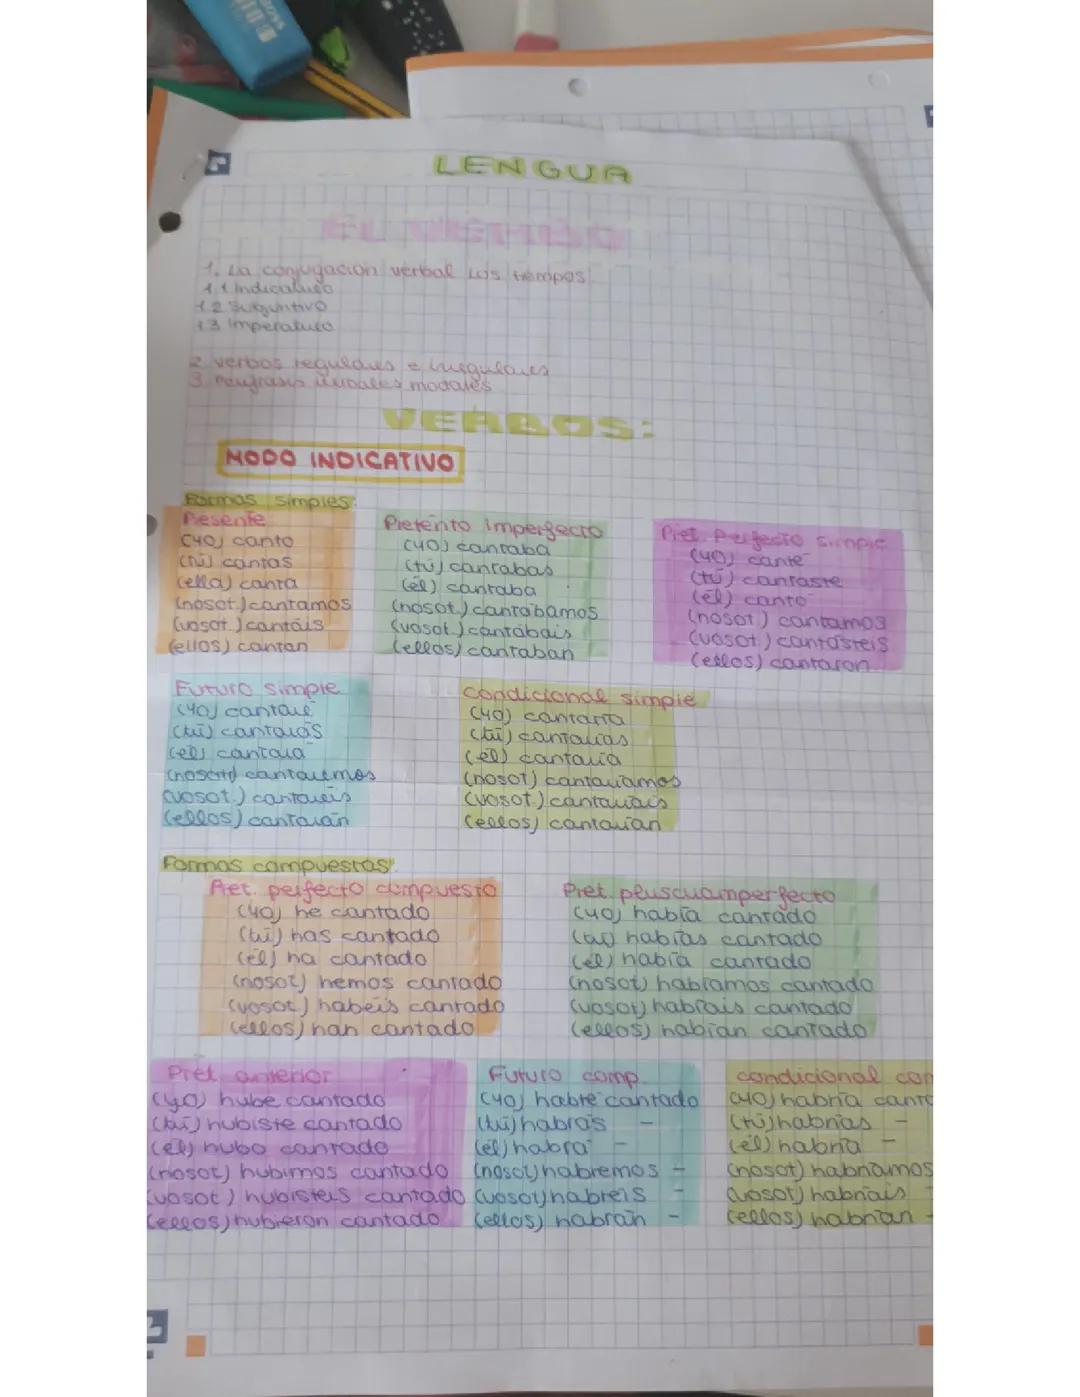 LENGUA
EL VERBO
1. La conjugación verbal Los tiempos
1.1 Indicativo
1.2 Subjuntivo
1.3 Imperativo
2. verbos regulares e irregulares
3. verbales modales
VERBOS:
MODO INDICATIVO
Formas simples:
Presente
(yo) canto
(tú) cantas
(ella) canta
(nosot.) cantamos
(vosot.) cantáis
(ellos) cantan
Pretérito imperfecto
(yo) cantaba
(tú) cantabas
(él) cantaba
(nosot.) cantábamos
(vosot.) cantábais
(ellos) cantaban
Pret. Perfecto simple
(yo) canté
(tú) cantaste
(él) cantó
(nosot.) cantamos
(vosot.) cantásteis
(ellos) cantaron
Futuro simple
(yo) cantaré
(tú) cantarás
(él) cantará
cantaremos
(vosot.) cantaréis
(ellos) cantarán
condicional simple
(yo) cantaría
(tú) cantarías
(él) cantaría
(nosot) cantaríamos
(vosot.) cantaríais
(ellos) cantarían
Formas compuestas:
Pret. perfecto compuesto
(yo) he cantado
(tú) has cantado
(él) ha cantado
(nosot) hemos cantado
(vosot.) habéis cantado
(ellos) han cantado
Pret. pluscuamperfecto
(yo) había cantado
(tú) habías cantado
(él) había cantado
(nosot) habíamos cantado
(vosot) habíais cantado
(ellos) habían cantado
Pret. anterior
(yo) hube cantado
(tú) hubiste cantado
(él) hubo cantado
(nosot) hubimos cantado
(vosot.) hubisteis cantado
(ellos) hubieron cantado
Futuro comp.
(yo) habré cantado
(tú) habrás -
(él) habrá -
(nosot) habremos -
(vosot) habréis -
(ellos) habrán -
condicional com
(yo) habría canta
(tú) habrías -
(él) habría -
(nosot) habríamos
(vosot) habríais -
(ellos) habrían -